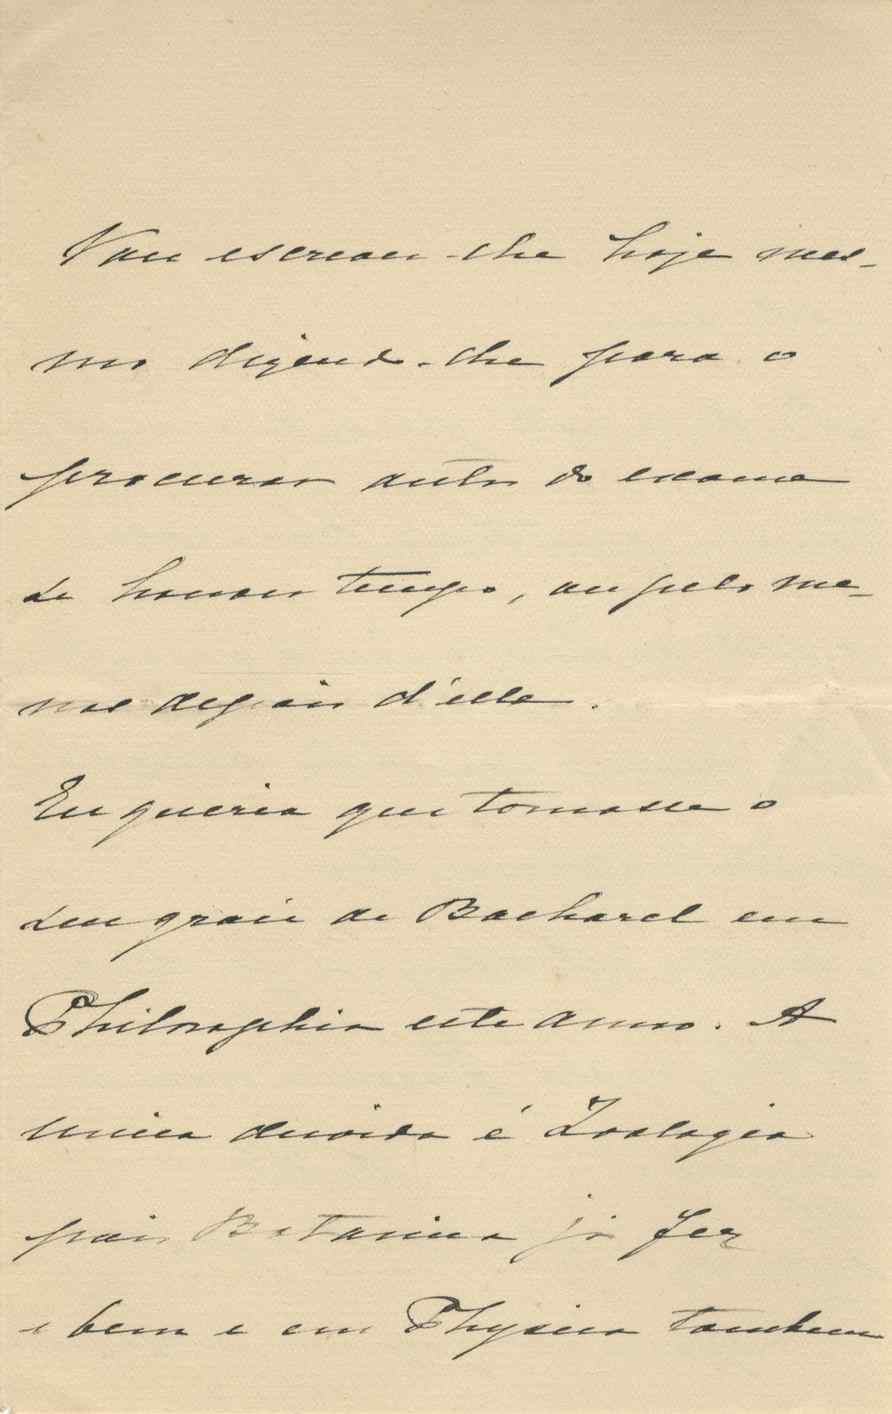 Vou escrever-lhe hoje mes-
mo dizendo-lhe para o
procurar antes do exame
se houver tempo, ou pelo me-
nos depois d'elle.
Eu queria que tomasse o
seu grau de Bacharel em
Philosophia este anno. A
unica duvida é Zoologia
pois Botanica já fez
e bem e em Physica tambem